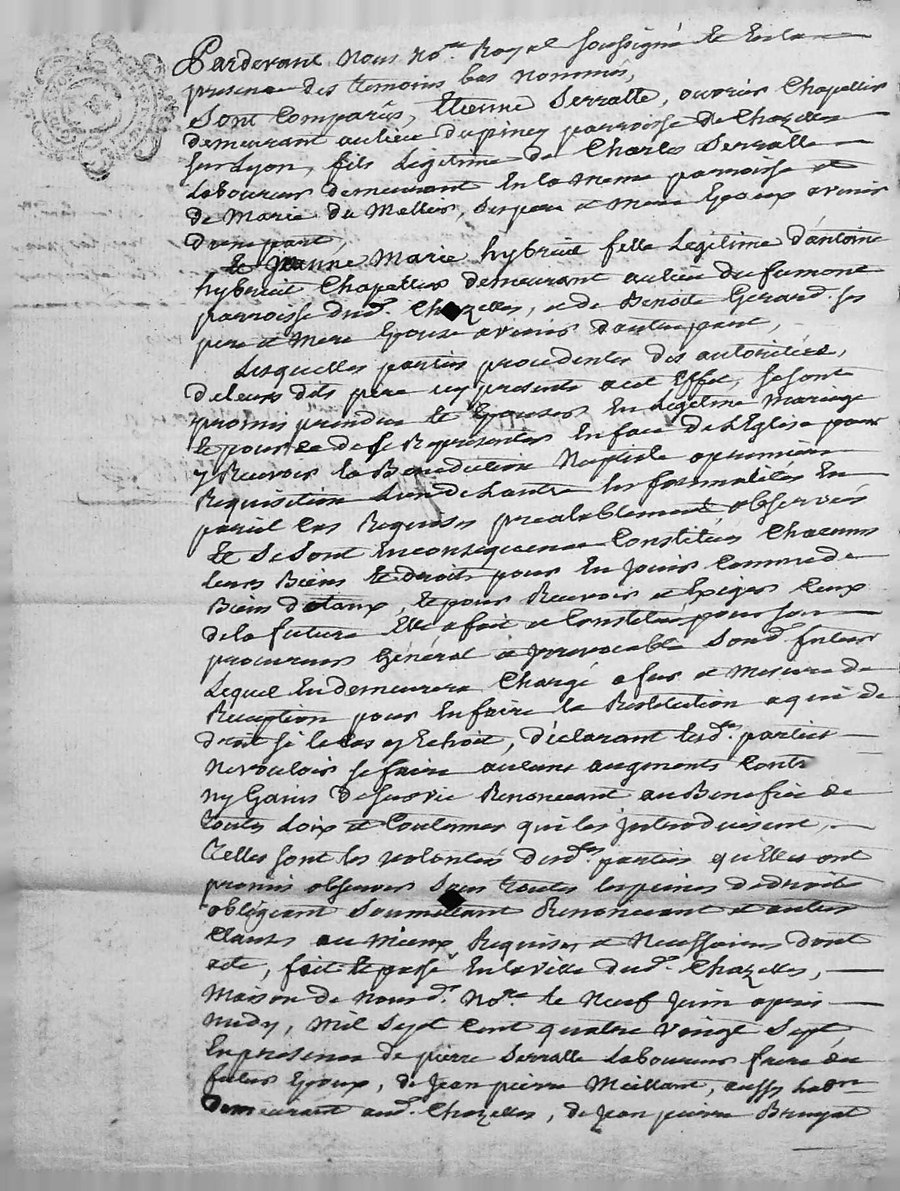 Pardevant nous No.re Royal soussigné et en la
presence des temoins bas nommés,
Sont Comparus, Etienne Serralle, ouvrier Chapellier
demeurant au lieu Dupiney parroisse de Chazelles
sur Lyon, fils Legitime de Charles Serralle
Laboureur demeurant En la meme parroisse et
de Marie du Mellier, ses pere et mere Epoux avenir
d'une part,
Et Jeanne Marie hybruit fille Legitime d'antoine
hybruit Chapellier demeurant au lieu du fumone
parroisse dud. Chazelles, et de Benoite Gerard ses
pere et mere Epouse avenir d'autre part,
Lesquelles parties procedentes des autorités,
de leurs dits père icy presents a cet Effet, se sont
promis prendre et Epouser En Legitime Mariage
et pour ce de se Représenter En face de l'Eglise pour
y Recevoir la Benediction Nuptiale a premiere
Requisition L'un de L'autre les formalités En
pareil cas Requises prealablement observées
Et se sont En consequence Constitués Chacuns
leurs Biens et droits pour En jouir comme de
Biens dotaux, et pour Recevoir et Exiger Ceux
de la future Elle a fait et Constitué pour son
procureur Général et Irrevocable Sond. futur
Lequel En demeurera Chargé a fur et Mesure de
Reception pour En faire la Restitution a qui de
droit si le Cas y Echoit, déclarant lesd. parties
Ne vouloir se faire aucuns augments Contr
Ny Gains de survie Renoncant au Benefice de
toutes Loix et Coutumes qui les Introduisent,
Telles sont les volontés desd. parties qu'Elles ont
promis observer sous toutes les peines de droit
obligeant soumettant Renoncant et autres
Clauses au Mieux Requises et Necessaires dont
acte, fait et passé En la ville dud. Chazelles,
Maison de Nousd. No.re le Neuf Juin apres
midy, Mil Sept Cent quatre vingt Sept,
En presence de pierre Serralle Laboureur frere du
futur Epoux, de Jean pierre Meillant, aussy Labr
demeurant aud. Chazelles, de Jean pierre Bruyat